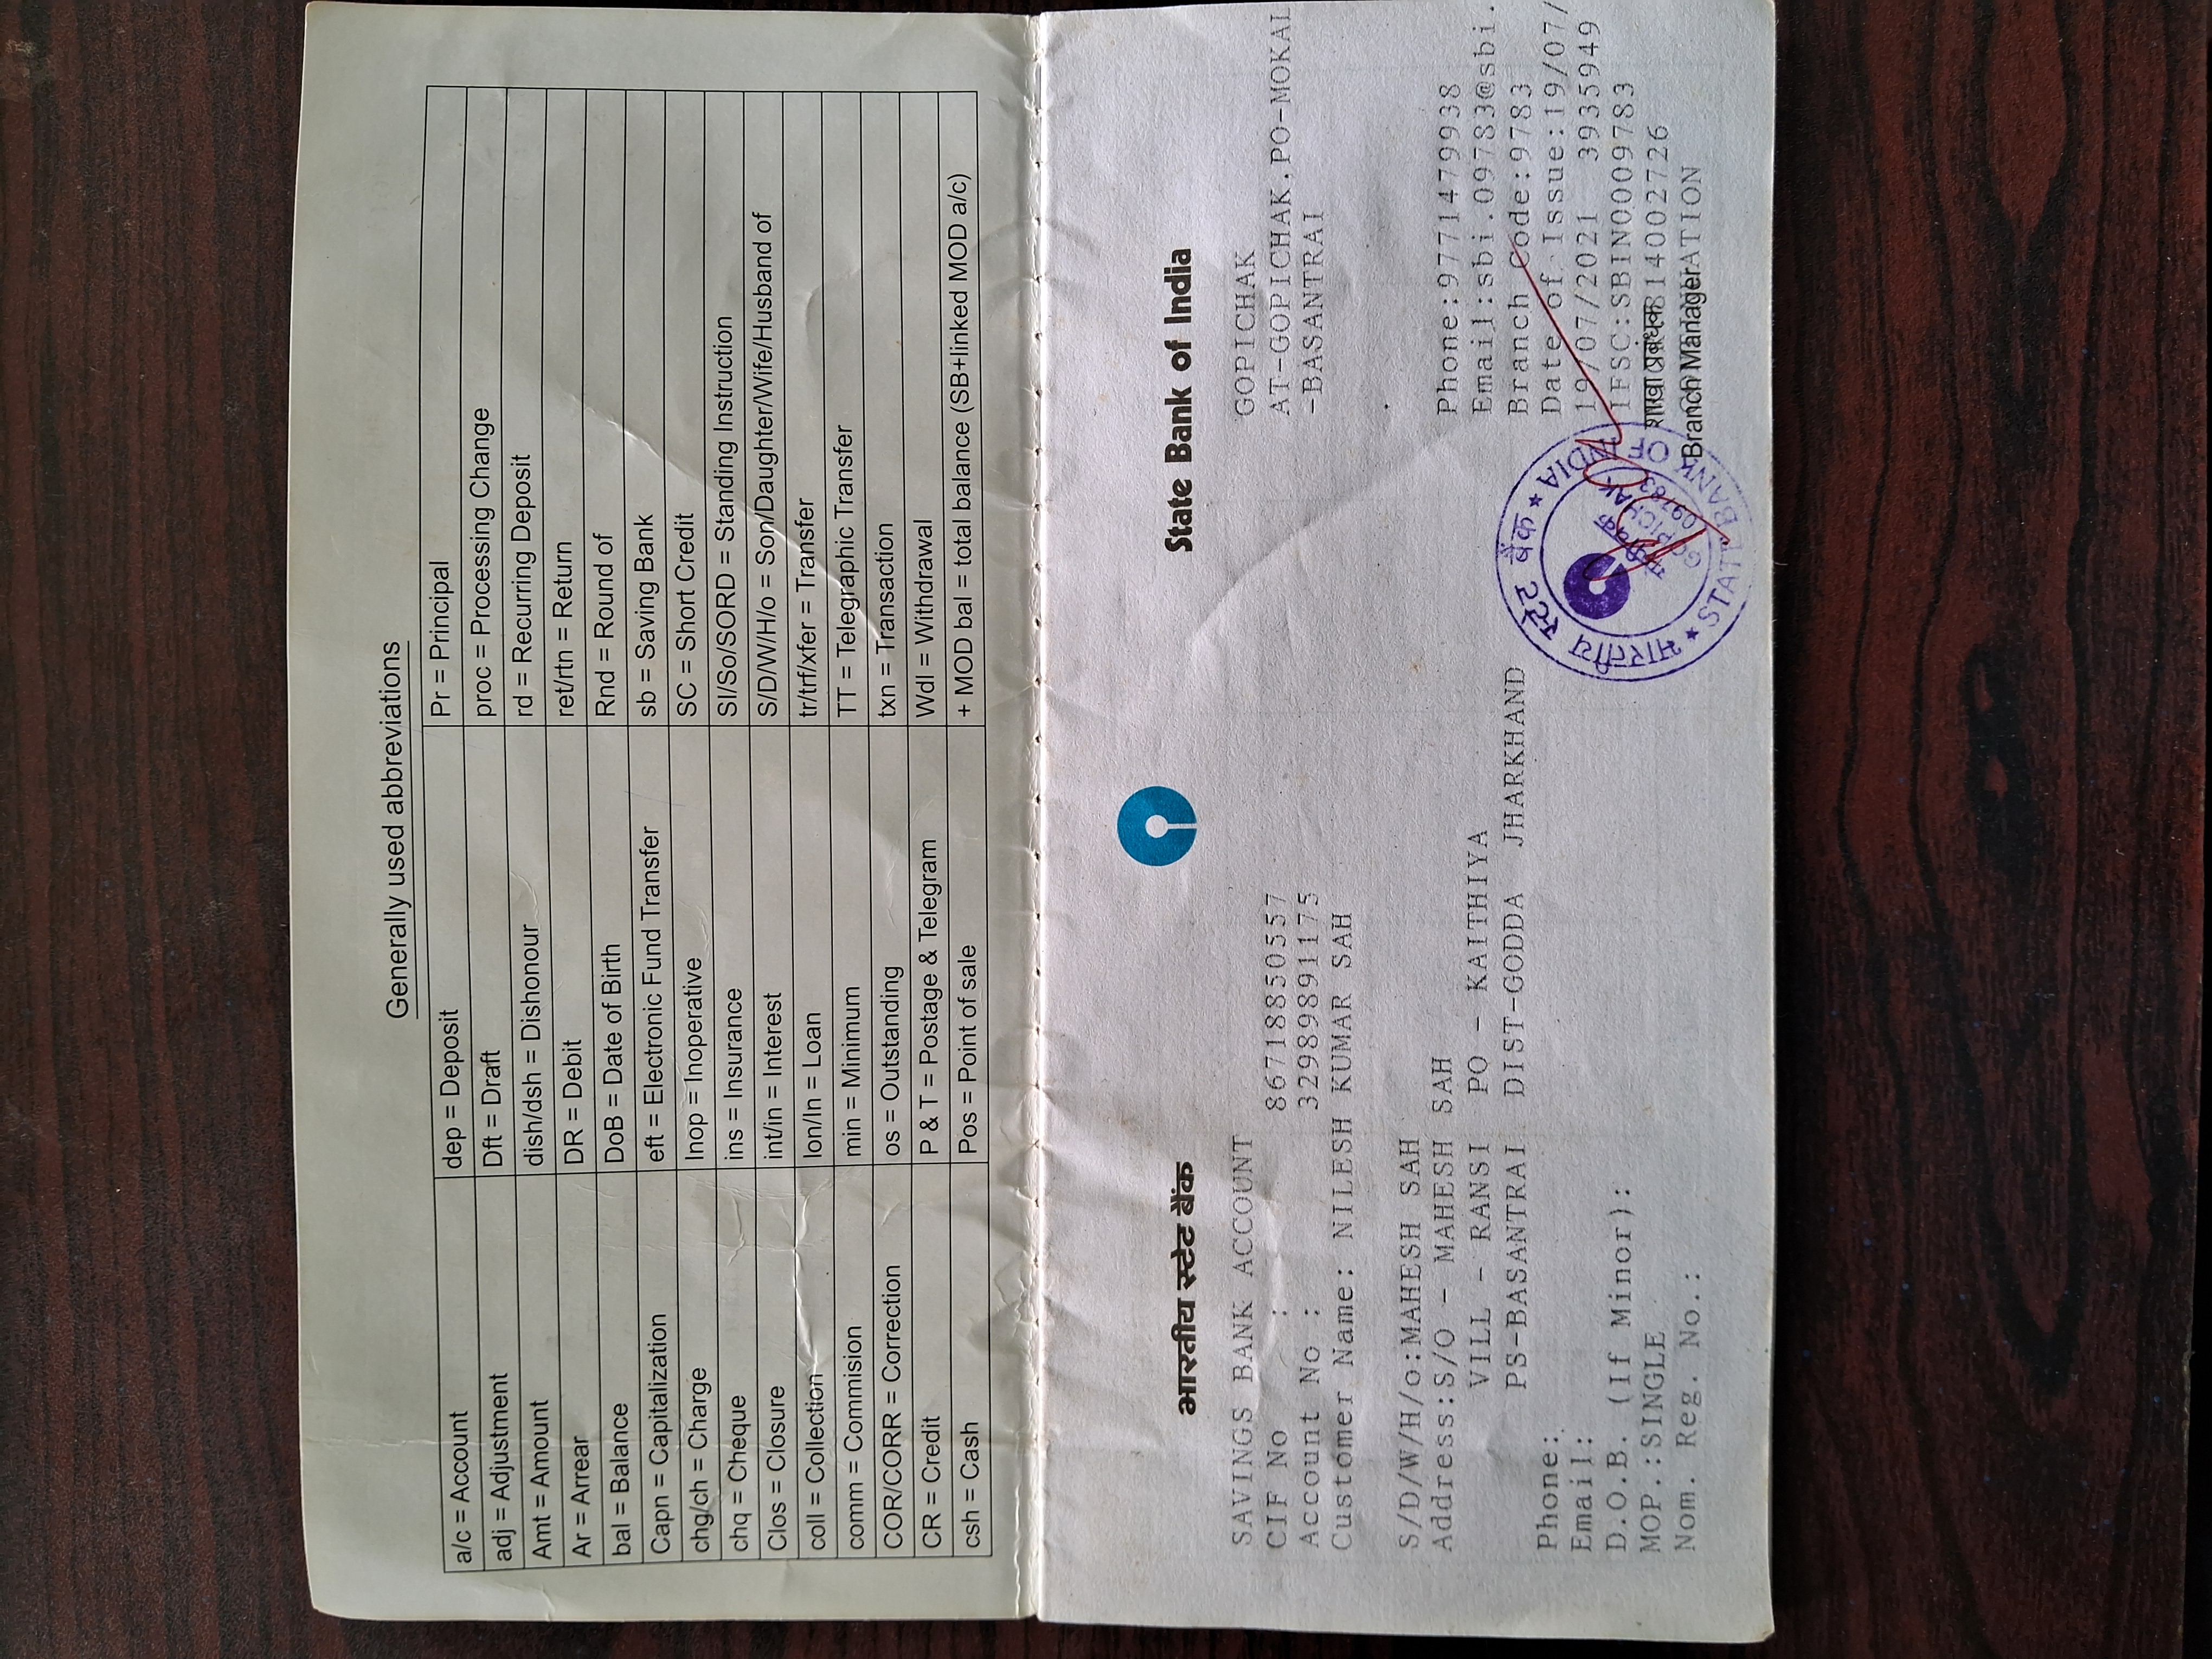 Generally used abbreviations
a/c = Account	dep = Deposit	Pr = Principal
adj = Adjustment	Dft = Draft	proc = Processing Change
Amt = Amount	dish/dsh = Dishonour	rd = Recurring Deposit
Ar = Arrear	DR = Debit	ret/rtn = Return
bal = Balance	DoB = Date of Birth	Rnd = Round of
Capn = Capitalization	eft = Electronic Fund Transfer	sb = Saving Bank
chg/ch = Charge	Inop = Inoperative	SC = Short Credit
chq = Cheque	ins = Insurance	SI/So/SORD = Standing Instruction
Clos = Closure	int/in = Interest	S/D/W/H/o = Son/Daughter/Wife/Husband of
coll = Collection	lon/ln = Loan	tr/trf/xfer = Transfer
comm = Commision	min = Minimum	TT = Telegraphic Transfer
COR/CORR = Correction	os = Outstanding	txn = Transaction
CR = Credit	P & T = Postage & Telegram	Wdl = Withdrawal
csh = Cash	Pos = Point of sale	+ MOD bal = total balance (SB+linked MOD a/c)
भारतीय स्टेट बैंक	State Bank of India
SAVINGS BANK ACCOUNT	GOPICHAK
CIF No : 86718850557	AT-GOPICHAK.PO-MOKAL
Account No : 32989891175	-BASANTRAI
Customer Name: NILESH KUMAR SAH
S/D/W/H/o:MAHESH SAH
Address:S/O - MAHESH SAH	Phone:9771479938
VILL - RANSI PO - KAITHIYA	Email:sbi.09783@sbi.
PS-BASANTRAI DIST-GODDA JHARKHAND	Branch Code:9783
Phone:	Date of Issue:19/07/
Email:	19/07/2021 3935949
D.O.B. (If Minor):	IFSC:SBIN0009783
MOP.:SINGLE	शाखा प्रबंधक 814002726
Nom. Reg. No.:	Branch Manager
भारतीय स्टेट बैंक
STATE BANK OF INDIA
गोपीचक
GOPICHAK
09783